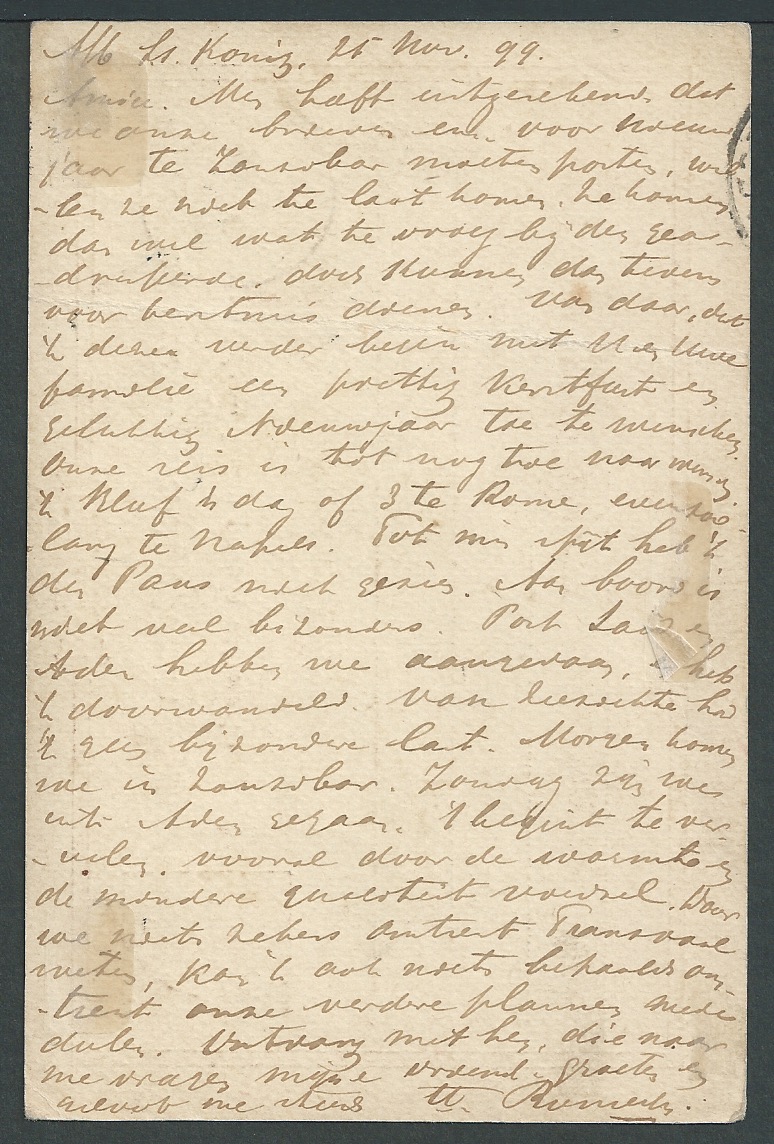 A/b ss. König, 25 Nov. 99.
Amice. Men heeft uitgerekend dat
we onze brieven enz. voor Nieuw
jaar te Zanzibar moeten posten, wil-
-len ze niet te laat komen. Ze komen
dan wel wat te vroeg bij den gea-
-dresseerde, doch kunnen dan tevens
voor kerstmis dienen. Van daar, dat
'k dezen verder begin met U en Uwe
familie een prettig Kerstfeest en
gelukkig Nieuwjaar toe te wenschen.
Onze reis is tot nog toe naar wensch.
'k Bleef 'n dag of 3 te Rome, even zoo
-lang te Napels. Tot mijn spijt heb 'k
den Paus niet gezien. Aan boord is
niet veel bizonders. Port Said en
Aden hebben we aangedaan, & heb
'k doorwandeld. Van zeeziekte had
'k geen bijzondere last. Morgen komen
we in Zanzibar. Zondag zijn we
uit Aden gegaan. 't begint te ver-
-velen, vooral door de warmte en
de mindere qualiteit voedsel. Daar
we niets zekers omtrent Transvaal
weten, kan 'k ook niets bepaalds om-
-trent onze verdere plannen mede
delen. Ontvang met hen, die naar
me vragen mijne vriend. groeten en
geloof me steeds tt.